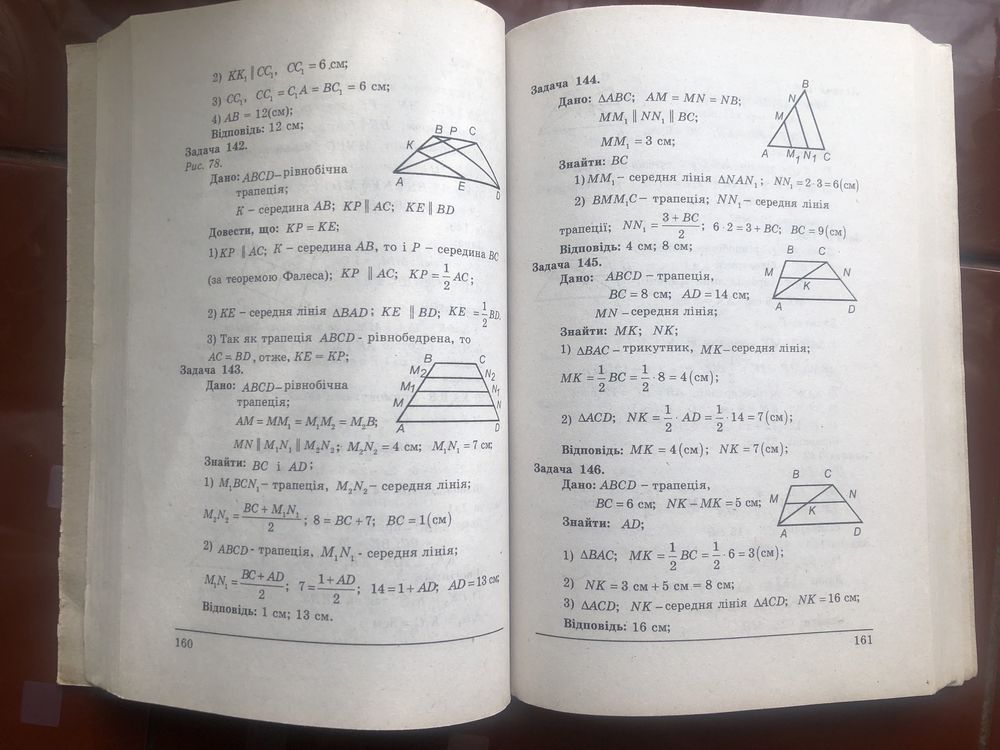 2) KK₁ ∥ CC₁, CC₁ = 6 см;
3) CC₁, CC₁ = C₁A = BC₁ = 6 см;
4) AB = 12(см);
Відповідь: 12 см;
Задача 142.
Рис. 78.
B P C
K
A E D
Дано: ABCD – рівнобічна
трапеція;
K – середина AB; KP ∥ AC; KE ∥ BD
Довести, що: KP = KE;
1) KP ∥ AC; K – середина AB, то і P – середина BC
(за теоремою Фалеса); KP ∥ AC; KP = 1/2 AC;
2) KE – середня лінія ΔBAD; KE ∥ BD; KE = 1/2 BD.
3) Так як трапеція ABCD - рівнобедрена, то
AC = BD, отже, KE = KP;
Задача 143.
B C
M₂ N₂
M₁ N₁
M N
A D
Дано: ABCD – рівнобічна
трапеція;
AM = MM₁ = M₁M₂ = M₂B;
MN ∥ M₁N₁ ∥ M₂N₂; M₂N₂ = 4 см; M₁N₁ = 7 см;
Знайти: BC і AD;
1) M₁BCN₁ – трапеція, M₂N₂ – середня лінія;
M₂N₂ = (BC + M₁N₁)/2; 8 = BC + 7; BC = 1(см)
2) ABCD - трапеція, M₁N₁ - середня лінія;
M₁N₁ = (BC + AD)/2; 7 = (1 + AD)/2; 14 = 1 + AD; AD = 13 см;
Відповідь: 1 см; 13 см.
160
Задача 144.
Дано: ΔABC; AM = MN = NB;
MM₁ ∥ NN₁ ∥ BC;
MM₁ = 3 см;
B
N
M
A M₁ N₁ C
Знайти: BC
1) MM₁ – середня лінія ΔNAN₁; NN₁ = 2·3 = 6(см)
2) BMM₁C – трапеція; NN₁ – середня лінія
трапеції, NN₁ = (3 + BC)/2; 6·2 = 3 + BC; BC = 9(см)
Відповідь: 4 см; 8 см;
Задача 145.
Дано: ABCD – трапеція,
BC = 8 см; AD = 14 см;
MN – середня лінія;
B C
M N
K
A D
Знайти: MK; NK;
1) ΔBAC – трикутник, MK – середня лінія;
MK = 1/2 BC = 1/2 · 8 = 4(см);
2) ΔACD; NK = 1/2 · AD = 1/2 · 14 = 7(см);
Відповідь: MK = 4(см); NK = 7(см);
Задача 146.
Дано: ABCD – трапеція,
BC = 6 см; NK – MK = 5 см;
Знайти: AD;
B C
M N
K
A D
1) ΔBAC; MK = 1/2 BC = 1/2 · 6 = 3(см);
2) NK = 3 см + 5 см = 8 см;
3) ΔACD; NK – середня лінія ΔACD; NK = 16 см;
Відповідь: 16 см;
161